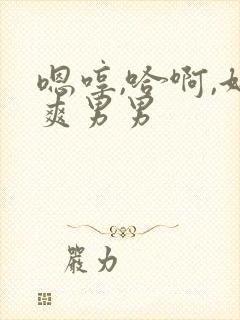 嗯哼,哈啊,好
爽男男
嚴力